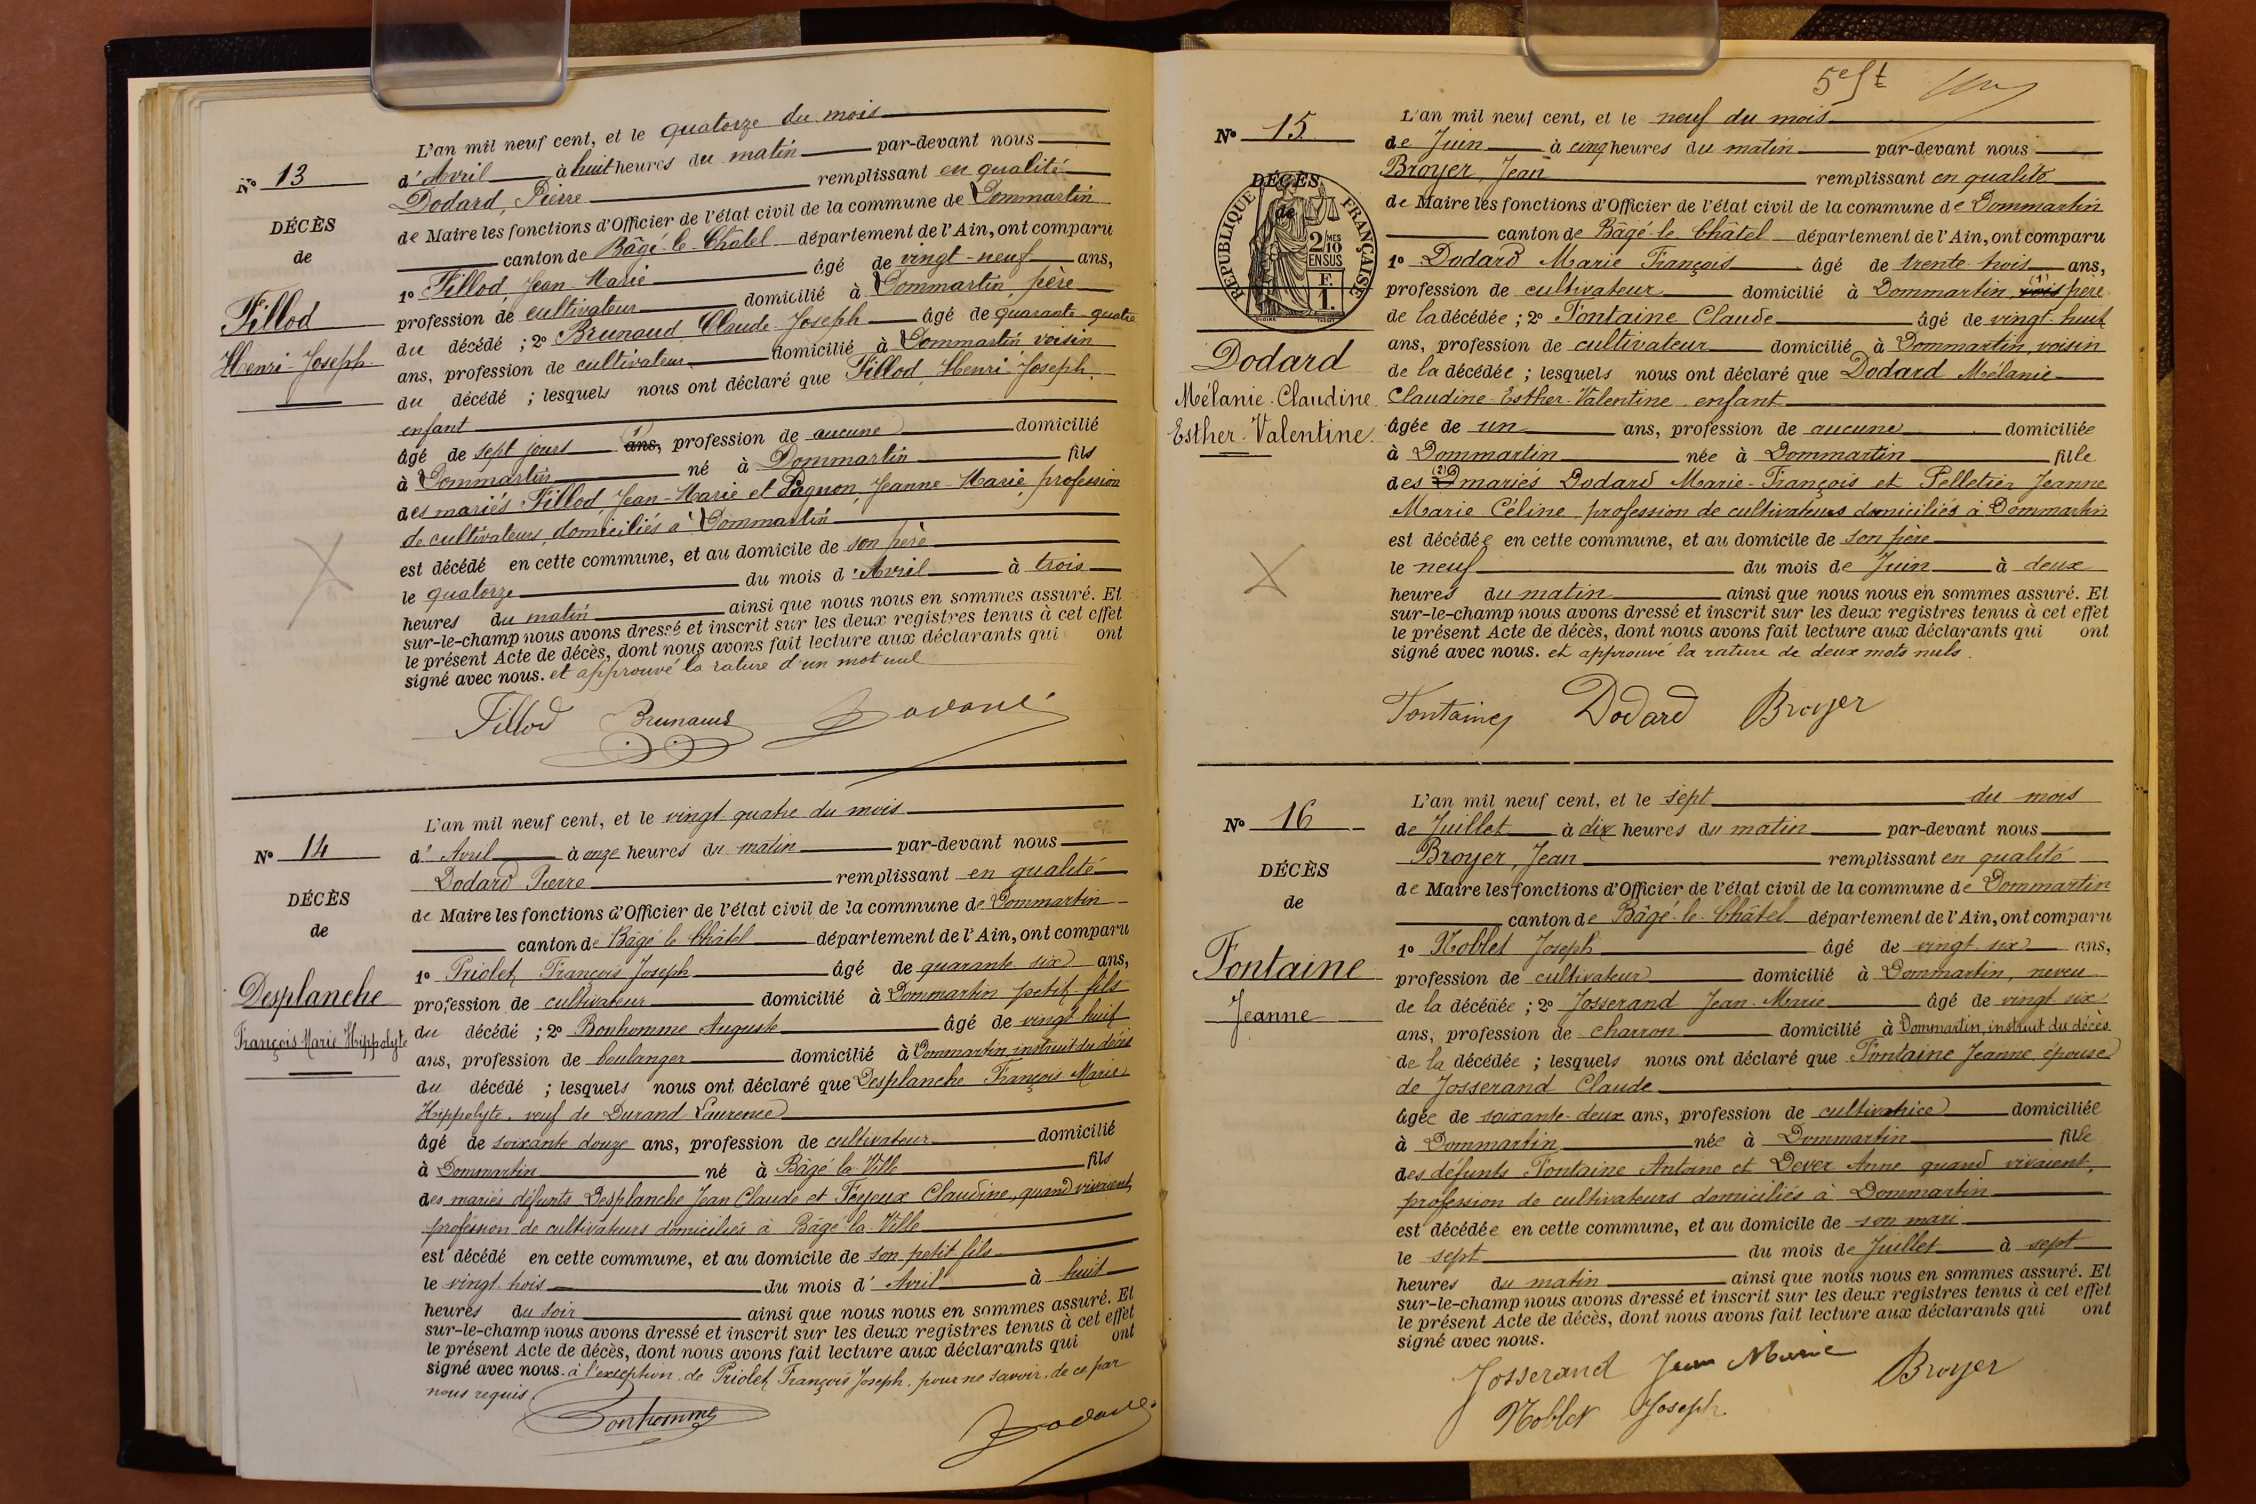 L'an mil neuf cent, et le quatorze du mois
N° 13
d'Avril à huit heures du matin par-devant nous
Dodard, Pierre remplissant en qualité
DÉCÈS
de Maire les fonctions d'Officier de l'état civil de la commune de Dommartin
de
canton de Bâgé-le-Châtel département de l'Ain, ont comparu
1° Fillod, Jean-Marie âgé de vingt-neuf ans,
Fillod
profession de cultivateur domicilié à Dommartin, père
du décédé ; 2° Brunaud, Claude-Joseph âgé de quarante-quatre
Henri-Joseph
ans, profession de cultivateur domicilié à Dommartin voisin
du décédé ; lesquels nous ont déclaré que Fillod, Henri-Joseph,
enfant
âgé de sept jours (1) ans, profession de aucune domicilié
à Dommartin né à Dommartin fils
des mariés Fillod, Jean-Marie et Pagnon, Jeanne-Marie, profession
de cultivateurs, domiciliés à Dommartin
est décédé en cette commune, et au domicile de son père
le quatorze du mois d'Avril à trois
heures du matin ainsi que nous nous en sommes assuré. Et
sur-le-champ nous avons dressé et inscrit sur les deux registres tenus à cet effet
le présent Acte de décès, dont nous avons fait lecture aux déclarants qui ont
signé avec nous. et approuvé la rature d'un mot nul
Fillod Brunaud Dodard
L'an mil neuf cent, et le vingt quatre du mois
N° 14
d' Avril à onze heures du matin par-devant nous
Dodard Pierre remplissant en qualité
DÉCÈS
de Maire les fonctions d'Officier de l'état civil de la commune de Dommartin
de
canton de Bâgé le Châtel département de l'Ain, ont comparu
1° Priolet, François Joseph âgé de quarante six ans,
Desplanche
profession de cultivateur domicilié à Dommartin petit-fils
François Marie Hippolyte
du décédé ; 2° Bonhomme Auguste âgé de vingt huit
ans, profession de boulanger domicilié à Dommartin instruit du décès
du décédé ; lesquels nous ont déclaré que Desplanche François Marie
Hippolyte, veuf de Durand Laurence
âgé de soixante douze ans, profession de cultivateur domicilié
à Dommartin né à Bâgé la Ville fils
des mariés défunts Desplanche Jean Claude et Féyeux Claudine, quand vivaient,
profession de cultivateurs domiciliés à Bâgé la Ville
est décédé en cette commune, et au domicile de son petit fils
le vingt trois du mois d' Avril à huit
heures du soir ainsi que nous nous en sommes assuré. Et
sur-le-champ nous avons dressé et inscrit sur les deux registres tenus à cet effet
le présent Acte de décès, dont nous avons fait lecture aux déclarants qui ont
signé avec nous. à l'exception de Priolet, François Joseph, pour ne savoir, de ce par
nous requis.
Bonhomme Dodard
5e
L'an mil neuf cent, et le neuf du mois
N° 15
de Juin à cinq heures du matin par-devant nous
Broyer, Jean remplissant en qualité
DÉCÈS
de
RÉPUBLIQUE FRANÇAISE
2 MES 10 EN SUS
F. 1.
de Maire les fonctions d'Officier de l'état civil de la commune de Dommartin
canton de Bâgé-le-Châtel département de l'Ain, ont comparu
1° Dodard Marie François âgé de trente trois ans,
profession de cultivateur domicilié à Dommartin, (1) père
de la décédée ; 2° Fontaine Claude âgé de vingt-huit
Dodard
ans, profession de cultivateur domicilié à Dommartin, voisin
de la décédée ; lesquels nous ont déclaré que Dodard Mélanie
Mélanie-Claudine
Claudine-Esther-Valentine enfant
Esther-Valentine
âgée de un ans, profession de aucune domiciliée
à Dommartin née à Dommartin fille
des (2) mariés Dodard Marie-François et Pelletier Jeanne
Marie Céline, profession de cultivateurs domiciliés à Dommartin
est décédée en cette commune, et au domicile de son père
le neuf du mois de Juin à deux
heures du matin ainsi que nous nous en sommes assuré. Et
sur-le-champ nous avons dressé et inscrit sur les deux registres tenus à cet effet
le présent Acte de décès, dont nous avons fait lecture aux déclarants qui ont
signé avec nous. et approuvé la rature de deux mots nuls.
Fontaine Dodard Broyer
L'an mil neuf cent, et le sept du mois
N° 16
de Juillet à dix heures du matin par-devant nous
Broyer, Jean remplissant en qualité
DÉCÈS
de Maire les fonctions d'Officier de l'état civil de la commune de Dommartin
de
canton de Bâgé-le-Châtel département de l'Ain, ont comparu
1° Noblet Joseph âgé de vingt six ans,
Fontaine
profession de cultivateur domicilié à Dommartin, neveu
de la décédée ; 2° Josserand Jean-Marie âgé de vingt six
Jeanne
ans, profession de charron domicilié à Dommartin, instruit du décès
de la décédée ; lesquels nous ont déclaré que Fontaine Jeanne, épouse
de Josserand Claude
âgée de soixante-deux ans, profession de cultivatrice domiciliée
à Dommartin née à Dommartin fille
des défunts Fontaine Antoine et Dever Anne quand vivaient,
profession de cultivateurs domiciliés à Dommartin
est décédée en cette commune, et au domicile de son mari
le sept du mois de Juillet à sept
heures du matin ainsi que nous nous en sommes assuré. Et
sur-le-champ nous avons dressé et inscrit sur les deux registres tenus à cet effet
le présent Acte de décès, dont nous avons fait lecture aux déclarants qui ont
signé avec nous.
Josserand Jean Marie Broyer
Noblet Joseph